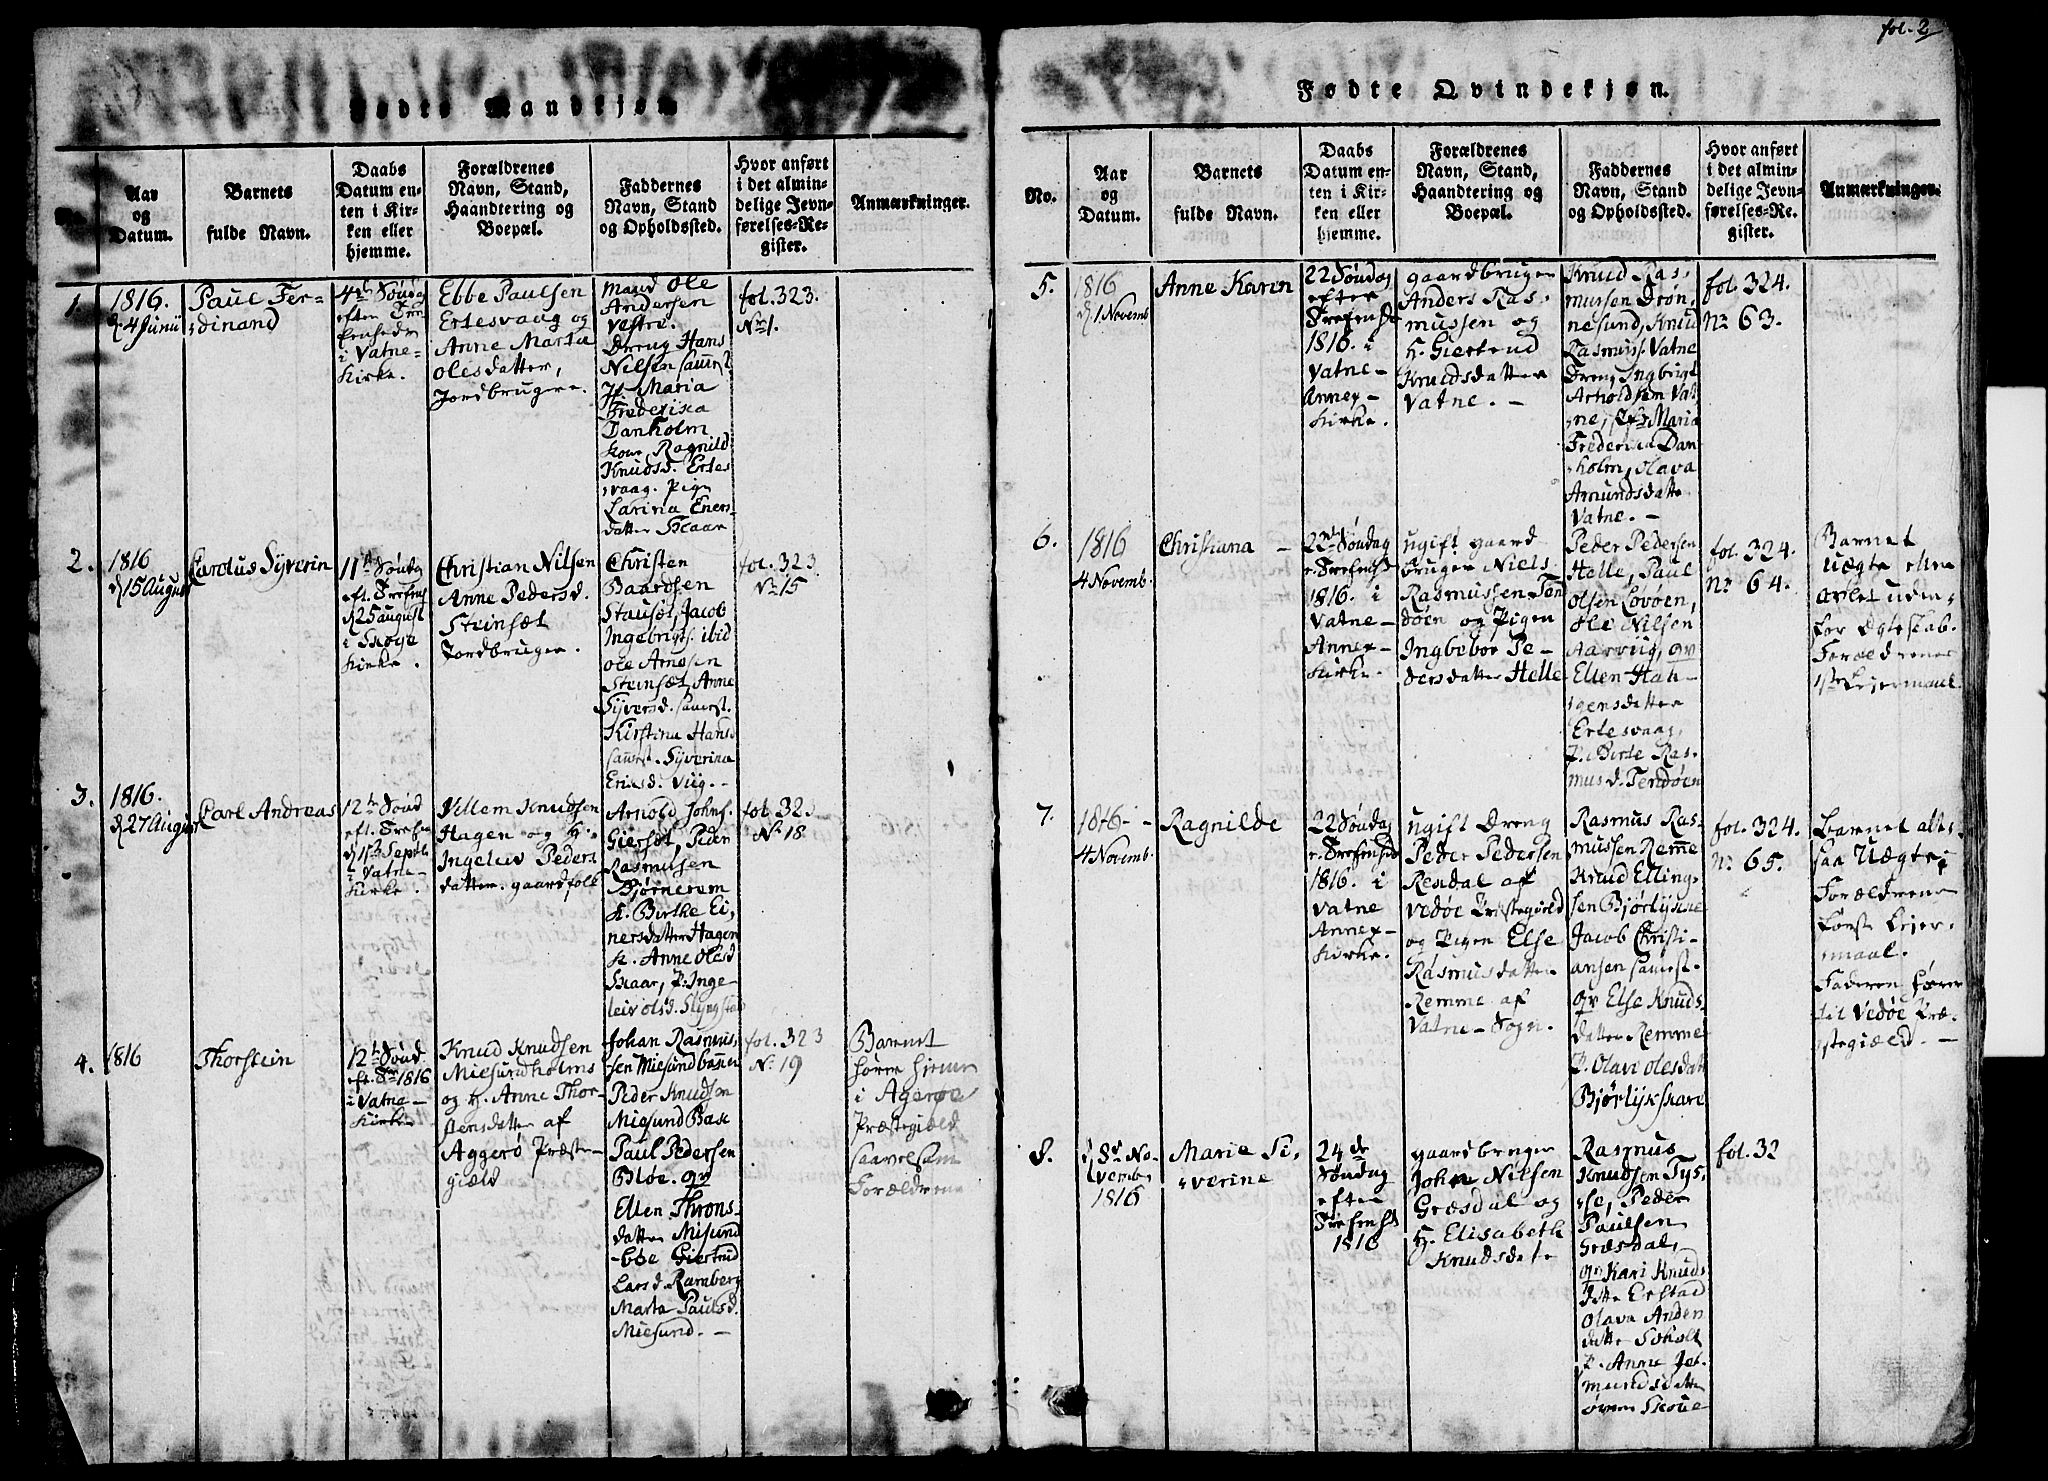 fol. 2
Fødte Mandkjøn
No.
Aar
og
Datum.
Barnets
fulde Navn.
Daabs
Datum en-
ten i Kir-
ken eller
hjemme.
Forældrenes
Navn, Stand,
Haandtering og
Boepæl.
Faddernes
Navn, Stand
og Opholdssted.
Hvor anført
i det almin-
delige Jevn-
førelses-Re-
gister.
Anmærkninger.
1.
1816.
d. 4 Junii
Paul Fer-
dinand
4de Søndag
efter
i Vatne-
Kirke.
Ebbe Paulsen
Ertesvaag og
Anne Marta
Olesdatter,
Jordbrugere.
Mand Ole
Andersen
Vestre.
Dreng Hans
Nilsen
Jf. Maria
Frederica
Danholm
Kone Ragnild
Knudsd. Ertes
vaag. Pige
Larina Eners
datter Skaar
fol. 323.
No 1.
2.
1816
d 15 August
Carolus Syverin
11te Søndag
eft. Trefens
d 25 august
i Skoge
Kirke.
Christian Nilsen
Anne Pedersd.
Steinsæt
Jordbruger.
Christen
Baardsen
Stauset, Jacob
Ingebrigts. ibid
Ole Arnesen
Steinsæt, Anne
Syversd. samest.
Kirstina Hansd
samest. Syverina
Ericsd. Viig. -
fol. 323
No 15
3.
1816.
d 27 August
Carl Andreas
12te Sønd
eft. Trefen
d 1ste Septb
i Vatne-
Kirke.
Villem Knudsen
Hagen og K.
Ingeleiv Peders
datter. gaardfolk
Arnold Johns.
Giersæt, Peder
Rasmusen
Bjørnerem
K. Birthe Ei,
nersdatter Hagen
K. Anne Olesd
Skaar, P. Inge
leiv Olsd. Slyngstad
fol. 323
No 18
4.
1816
Thorstein
12te Sønd
eft. Tr 1816
i Vatne-
Kirke
Knud Knudsen
Miesundholms
og K. Anne Thor-
stensdatter af
Aggerø Præste-
gield
Johan Rasmus,
sen Miesund
Peder Knudsen
Miesund Base
Paul Pedersen
Bløe. qv
Ellen Throns-
datter Misund
Ebbe Giertrud
Larsd. Ramberg
Marta Paulsd.
Miesund. -
fol. 323
No 19
Barnet
hører hjem
i Agerøe
Præstegield
saavelsom
Forældrene
Fødte Qvindekjøn.
No.
Aar
og
Datum.
Barnets
fulde Navn.
Daabs
Datum en-
ten i Kir-
ken eller
hjemme.
Forældrenes
Navn, Stand,
Haandtering og
Boepæl.
Faddernes
Navn, Stand
og Opholdssted.
Hvor anført
i det almin-
delige Jevn-
førelses-Re-
gister.
Anmærkninger.
5.
1816
d 1 Novemb
Anne Karen
22 Søndag
efter
Trefensh
1816. i
Vatne-
Annex-
Kirke.
gaardbruger
Anders Ras-
mussen og
K. Giertrud
Knudsdatter
Vatne. -
Knud Ras-
mussen Drøn,
nesund, Knud
Rasmuss. Vatne
Dreng Ingbrigt
Arnoldsen Vat
ne, Jfr Maria
Frederica Dan
holm, Olava
Amundsdatter
Vatne. -
fol. 324.
No 63.
6.
1816
4 Novemb.
Christiana -
23de Søndag
e. Trefensh
1816. i
Vatne-
Annex-
Kirke.
ugift gaard
bruger Niels
Rasmussen Ten
døen og Pigen
Ingbebor Pe-
dersdatter Helle
Peder Pedersen
Helle, Paul
Olsen Løvøen,
Ole Nilsen
Aarviig, qv
Ellen Haa-
gensdatter
Ertesvaag,
P. Birte Ras
musd. Tendøen
fol. 324.
No 64.
Barnet
uægte eller
avlet uden,
for Egteskab.
Forældrenes
1ste Leiermaal.
7.
1816 - -
4 Novemb.
Ragnilde
22 Søndag
e. Trefensh
1816. i
Vatne
Annex-
Kirke.
ugift Dreng
Peder Pedersen
Resdal af
Vedøe Præstegield
og Pigen Else
Rasmusdatter
Remme af
Vatne-Sogn.
Rasmus Ras-
mussen Remme
Knud Elling-
sen Bjørlykke
Jacob Christi-
ansen samest.
qv Else Knuds-
datter Remme
P. Olavi Olesdatt
Bjørlykskare
fol. 324.
No 65.
Barnet alt-
saa Uægte,
Forældrene
første Leier-
maal.
Faderen hører
til Vedøe Præ-
stegield. -
8.
d 8de No-
vemb.
1816
Marie Si-
verine
24de
Søndag
efter
Trefensh
1816
gaardbruger
John Nilsen
Græsdal og
K. Elisabeth
Knudsdatte
Rasmus
Knudsen Tys-
se, Peder
Paulsen
Græsdal,
qv Kari Knuds
datte Erstad
Olava Anders
datte Soholt
P. Anne Jet-
mundsdatte
øvre Skoue
fol. 32